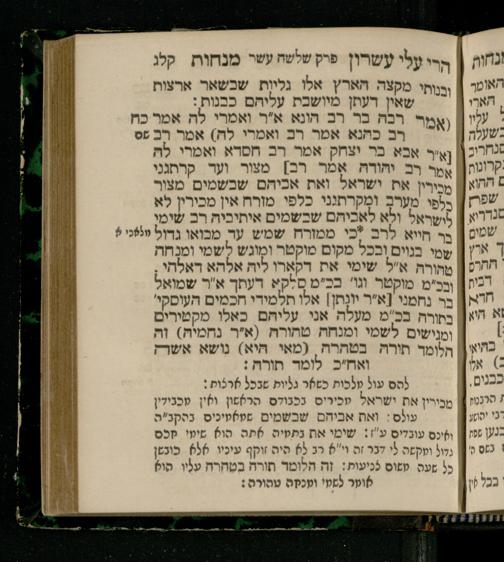 הרי עלי עשרון פרק שלשה עשר מנחות קלג
ובנותי מקצה הארץ אלו גליות שבשאר ארצות
שאין דעתן מיושבת עליהם כבנות:
(אמר רבה בר רב הונא א״ר ואמרי לה אמר כח
רב כהנא אמר רב ואמרי לה) אמר רב שם
[א״ר אבא בר יצחק אמר רב חסדא ואמרי לה
אמר רב יהודה אמר רב] מצור ועד קרתגני
מכירין את ישראל ואת אביהם שבשמים מצור
כלפי מערב ומקרתגני כלפי מזרח אין מכירין לא
לישראל ולא לאביהם שבשמים איתיביה רב שימי
בר חייא לרב *כי ממזרח שמש עד מבואו גדול מלאכי א
שמי בגוים ובכל מקום מוקטר ומוגש לשמי ומנחה
טהורה א״ל שימי את דקארו ליה אלהא דאלהי
ובכ״מ מוקטר וגו׳ בכ״מ סלקא דעתך א״ר שמואל
בר נחמני [א״ר יונתן] אלו תלמידי חכמים העוסקי׳
בתורה בכ״מ מעלה אני עליהם כאלו מקטירים
ומגישים לשמי ומנחה טהורה (א״ר נחמיה) זה
הלומד תורה בטהרה (מאי היא) נושא אשה
ואח״כ לומד תורה:
להם עול מלכות כשאר גליות שבכל ארצות:
מכירין את ישראל מכירים בכבודם הראשון ואין מכבידין
עולם: ואת אביהם שבשמים שמאמינים בהקב״ה
ואינם עובדים ע״ז: שימי את בתמיה אתה הוא שימי חכם
גדול ומקשה לי דבר זה וי״א רב לא היה זוקף עיניו אלא כובשן
כל שעה משום לניעות: זה הלומד תורה בטהרה עליו הוא
אומר לשמי ומנחה טהורה: